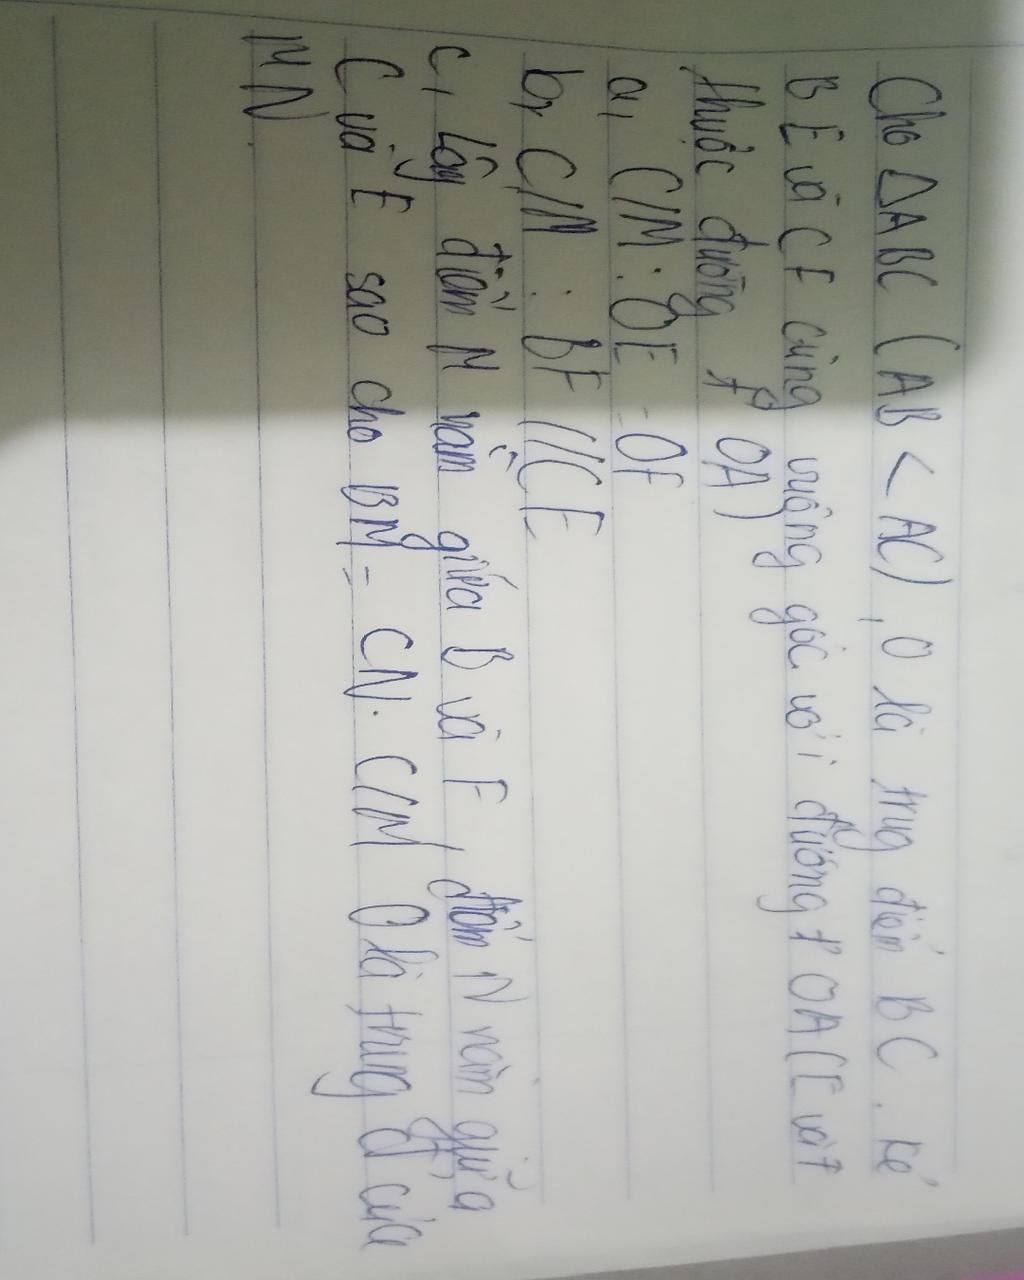 Cho ΔABC (AB < AC), O là trug điểm BC. Kẻ
BE và CF cùng vuông góc với đường t² OA (E và F
thuộc đường t² OA)
a, C/M: OE = OF
b, C/M: BF // CE
c, Lấy điểm M nằm giữa B và F, điểm N nằm giữa
C và E sao cho BM = CN. C/M O là trung đ² của
MN